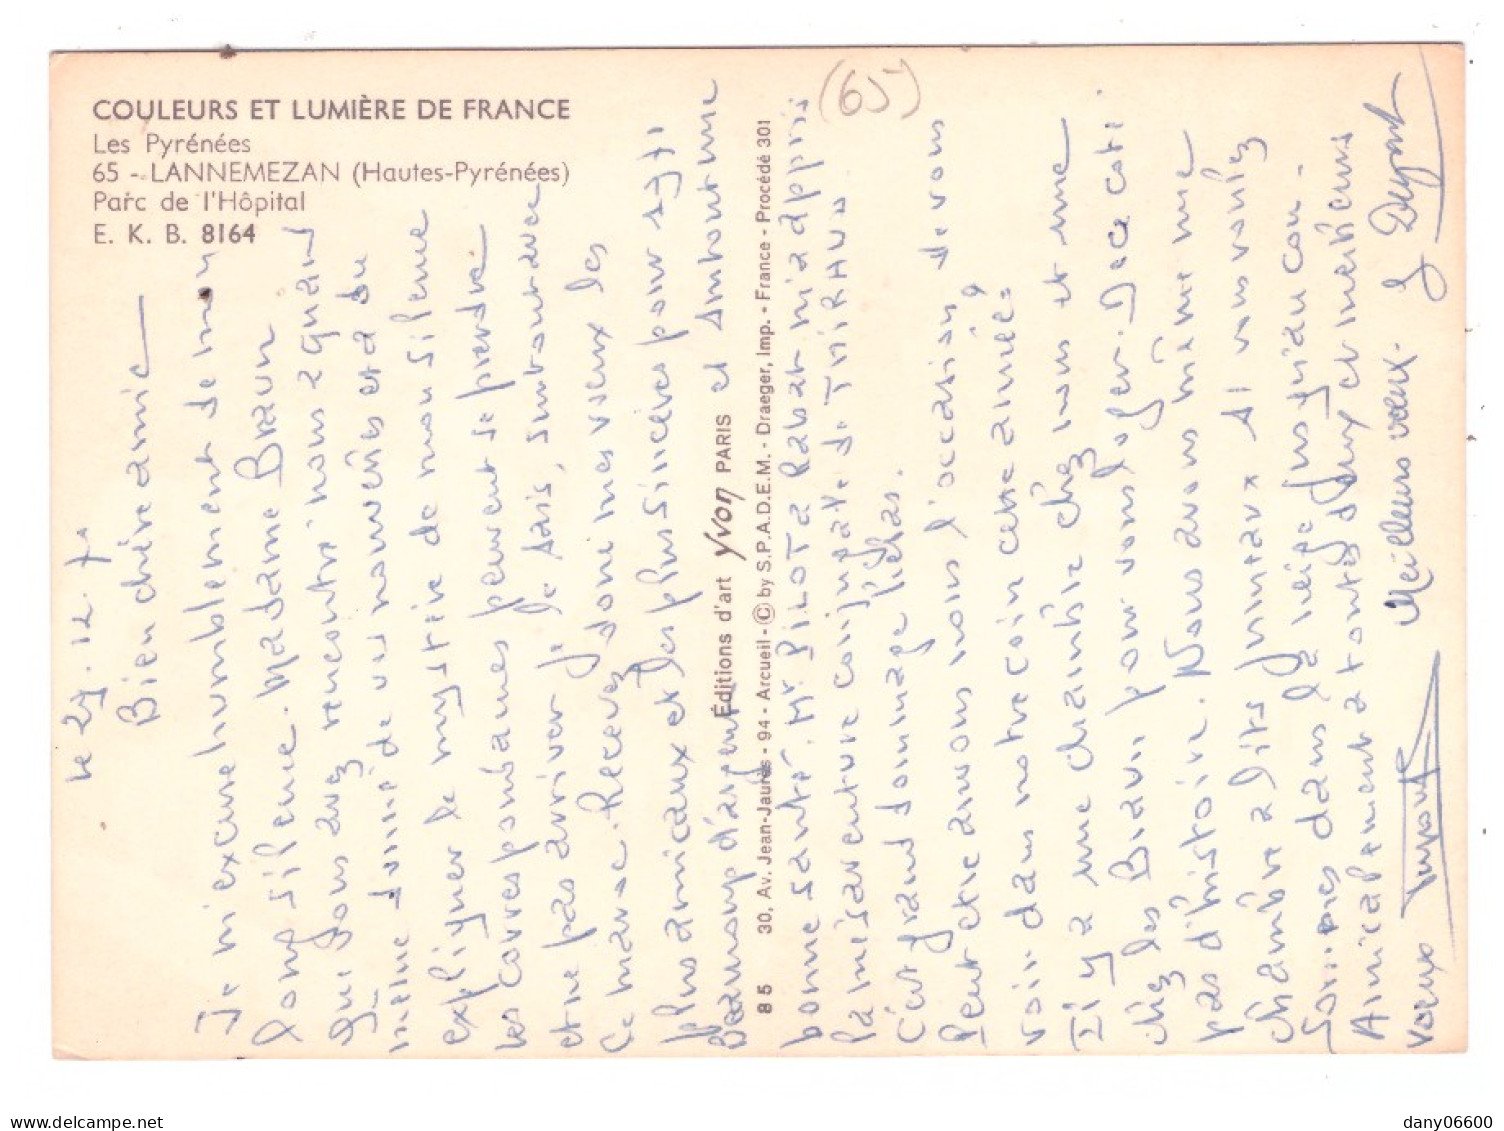 COULEURS ET LUMIÈRE DE FRANCE
Les Pyrénées
65 - LANNEMEZAN (Hautes-Pyrénées)
Parc de l'Hôpital
E. K. B. 8164
(65)
Éditions d'art yvon PARIS
85 30, Av. Jean-Jaurès - 94 - Arcueil - © by S.P.A.D.E.M. - Draeger, Imp. - France - Procédé 301
le 29.12.70
Bien chère amie
Je m'excuse humblement de mon
long silence. Madame Braun
que vous avez rencontré nous a quand
même donné de vos nouvelles et a du
expliquer le mystère de mon silence
les correspondances peuvent se perdre
et ne pas arriver je le sais, surtout avec
ce maroc. Recevez donc mes voeux les
plus amicaux et les plus sincères pour 1971
Beaucoup d'argent et surtout une
bonne santé. Mr PILOT a Rabat m'a appris
la mésaventure conjugale de
C'est grand dommage hélas.
Peut etre aurons nous l'occasion de vous
voir dans notre coin cette année,
Il y a une chambre chez nous et une
chez les Braun pour vous loger. De ce coté
pas d'histoire. Nous avons même une
chambre a lits jumeaux si vous voulez
Sommes dans la neige jusqu'au cou.
Amicalement a toutes deux et meilleurs
voeux
Meilleurs voeux.
delcampe.net
dany06600